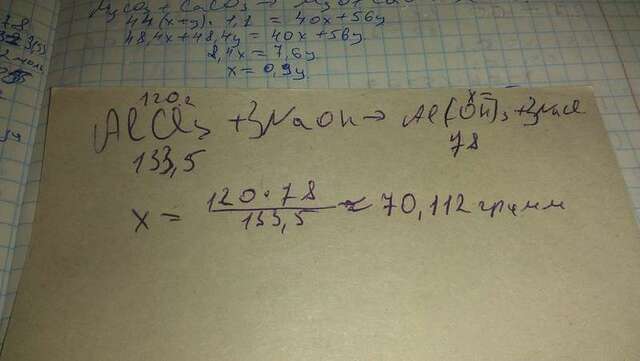 MgCO₃ + CaCO₃ →
44(x+y)·1,1 = 40x+56y
48,4x+48,4y = 40x+56y
8,4x = 7,6y
x = 0,9y
120г x=
AlCl₃ + 3NaOH → Al(OH)₃ + 3NaCl
133,5 78
x = 120·78 / 133,5 ≈ 70,112 грамм